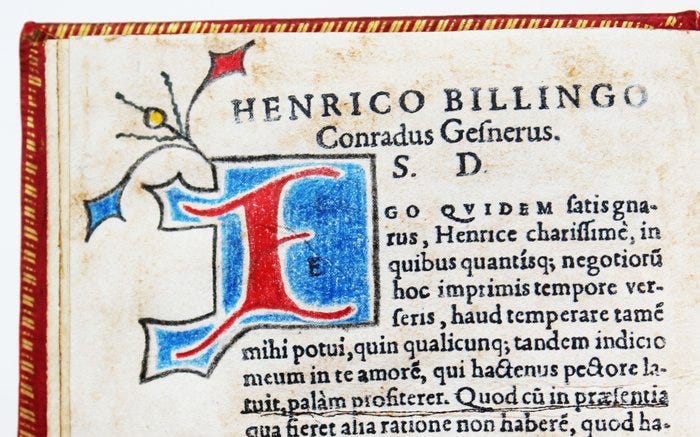 HENRICO BILLINGO
Conradus Geſnerus.
S. D.
E
EGO QVIDEM ſatis gna-
rus, Henrice chariſſimè, in
quibus quantíſq; negotiorũ
hoc imprimis tempore ver-
ſeris, haud temperare tamẽ
mihi potui, quin qualicunq; tandem indicio
meum in te amorẽ, qui hactenus pectore la-
tuit, palàm profiterer. Quod cũ in præſentia
qua fieret alia ratione non haberẽ, quod ha-